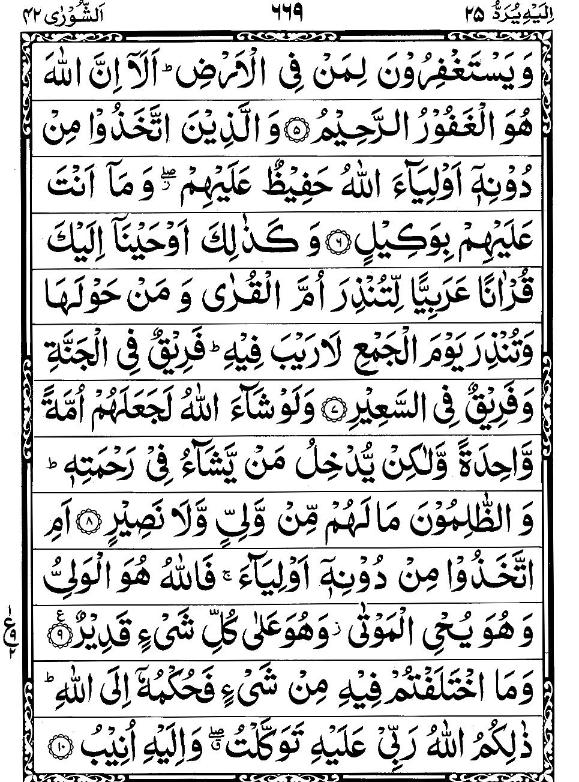 اِلَیْهِ یُرَدُّ ۲۵ ٦٦٩ اَلشُّوْرٰی ۴۲
وَ یَسْتَغْفِرُوْنَ لِمَنْ فِی الْاَرْضِ ؕ اَلَاۤ اِنَّ اللّٰهَ
هُوَ الْغَفُوْرُ الرَّحِیْمُ ۝۵ وَ الَّذِیْنَ اتَّخَذُوْا مِنْ
دُوْنِهٖۤ اَوْلِیَآءَ اللّٰهُ حَفِیْظٌ عَلَیْهِمْ ۖ٘ وَ مَاۤ اَنْتَ
عَلَیْهِمْ بِوَكِیْلٍ ۝۶ وَ كَذٰلِكَ اَوْحَیْنَاۤ اِلَیْكَ
قُرْاٰنًا عَرَبِیًّا لِّتُنْذِرَ اُمَّ الْقُرٰی وَ مَنْ حَوْلَهَا
وَتُنْذِرَ یَوْمَ الْجَمْعِ لَارَیْبَ فِیْهِ ؕ فَرِیْقٌ فِی الْجَنَّةِ
وَ فَرِیْقٌ فِی السَّعِیْرِ ۝۷ وَلَوْ شَآءَ اللّٰهُ لَجَعَلَهُمْ اُمَّةً
وَّاحِدَةً وَّلٰكِنْ یُّدْخِلُ مَنْ یَّشَآءُ فِیْ رَحْمَتِهٖ ؕ
وَ الظّٰلِمُوْنَ مَا لَهُمْ مِّنْ وَّلِیٍّ وَّلَا نَصِیْرٍ ۝۸ اَمِ
اتَّخَذُوْا مِنْ دُوْنِهٖۤ اَوْلِیَآءَ ۚ فَاللّٰهُ هُوَ الْوَلِیُّ
وَ هُوَ یُحْیِ الْمَوْتٰی ؗ وَهُوَ عَلٰی كُلِّ شَیْءٍ قَدِیْرٌ ۝۹ ع
وَ مَا اخْتَلَفْتُمْ فِیْهِ مِنْ شَیْءٍ فَحُكْمُهٗۤ اِلَی اللّٰهِ ؕ
ذٰلِكُمُ اللّٰهُ رَبِّیْ عَلَیْهِ تَوَكَّلْتُ ۖۗ وَاِلَیْهِ اُنِیْبُ ۝۱۰